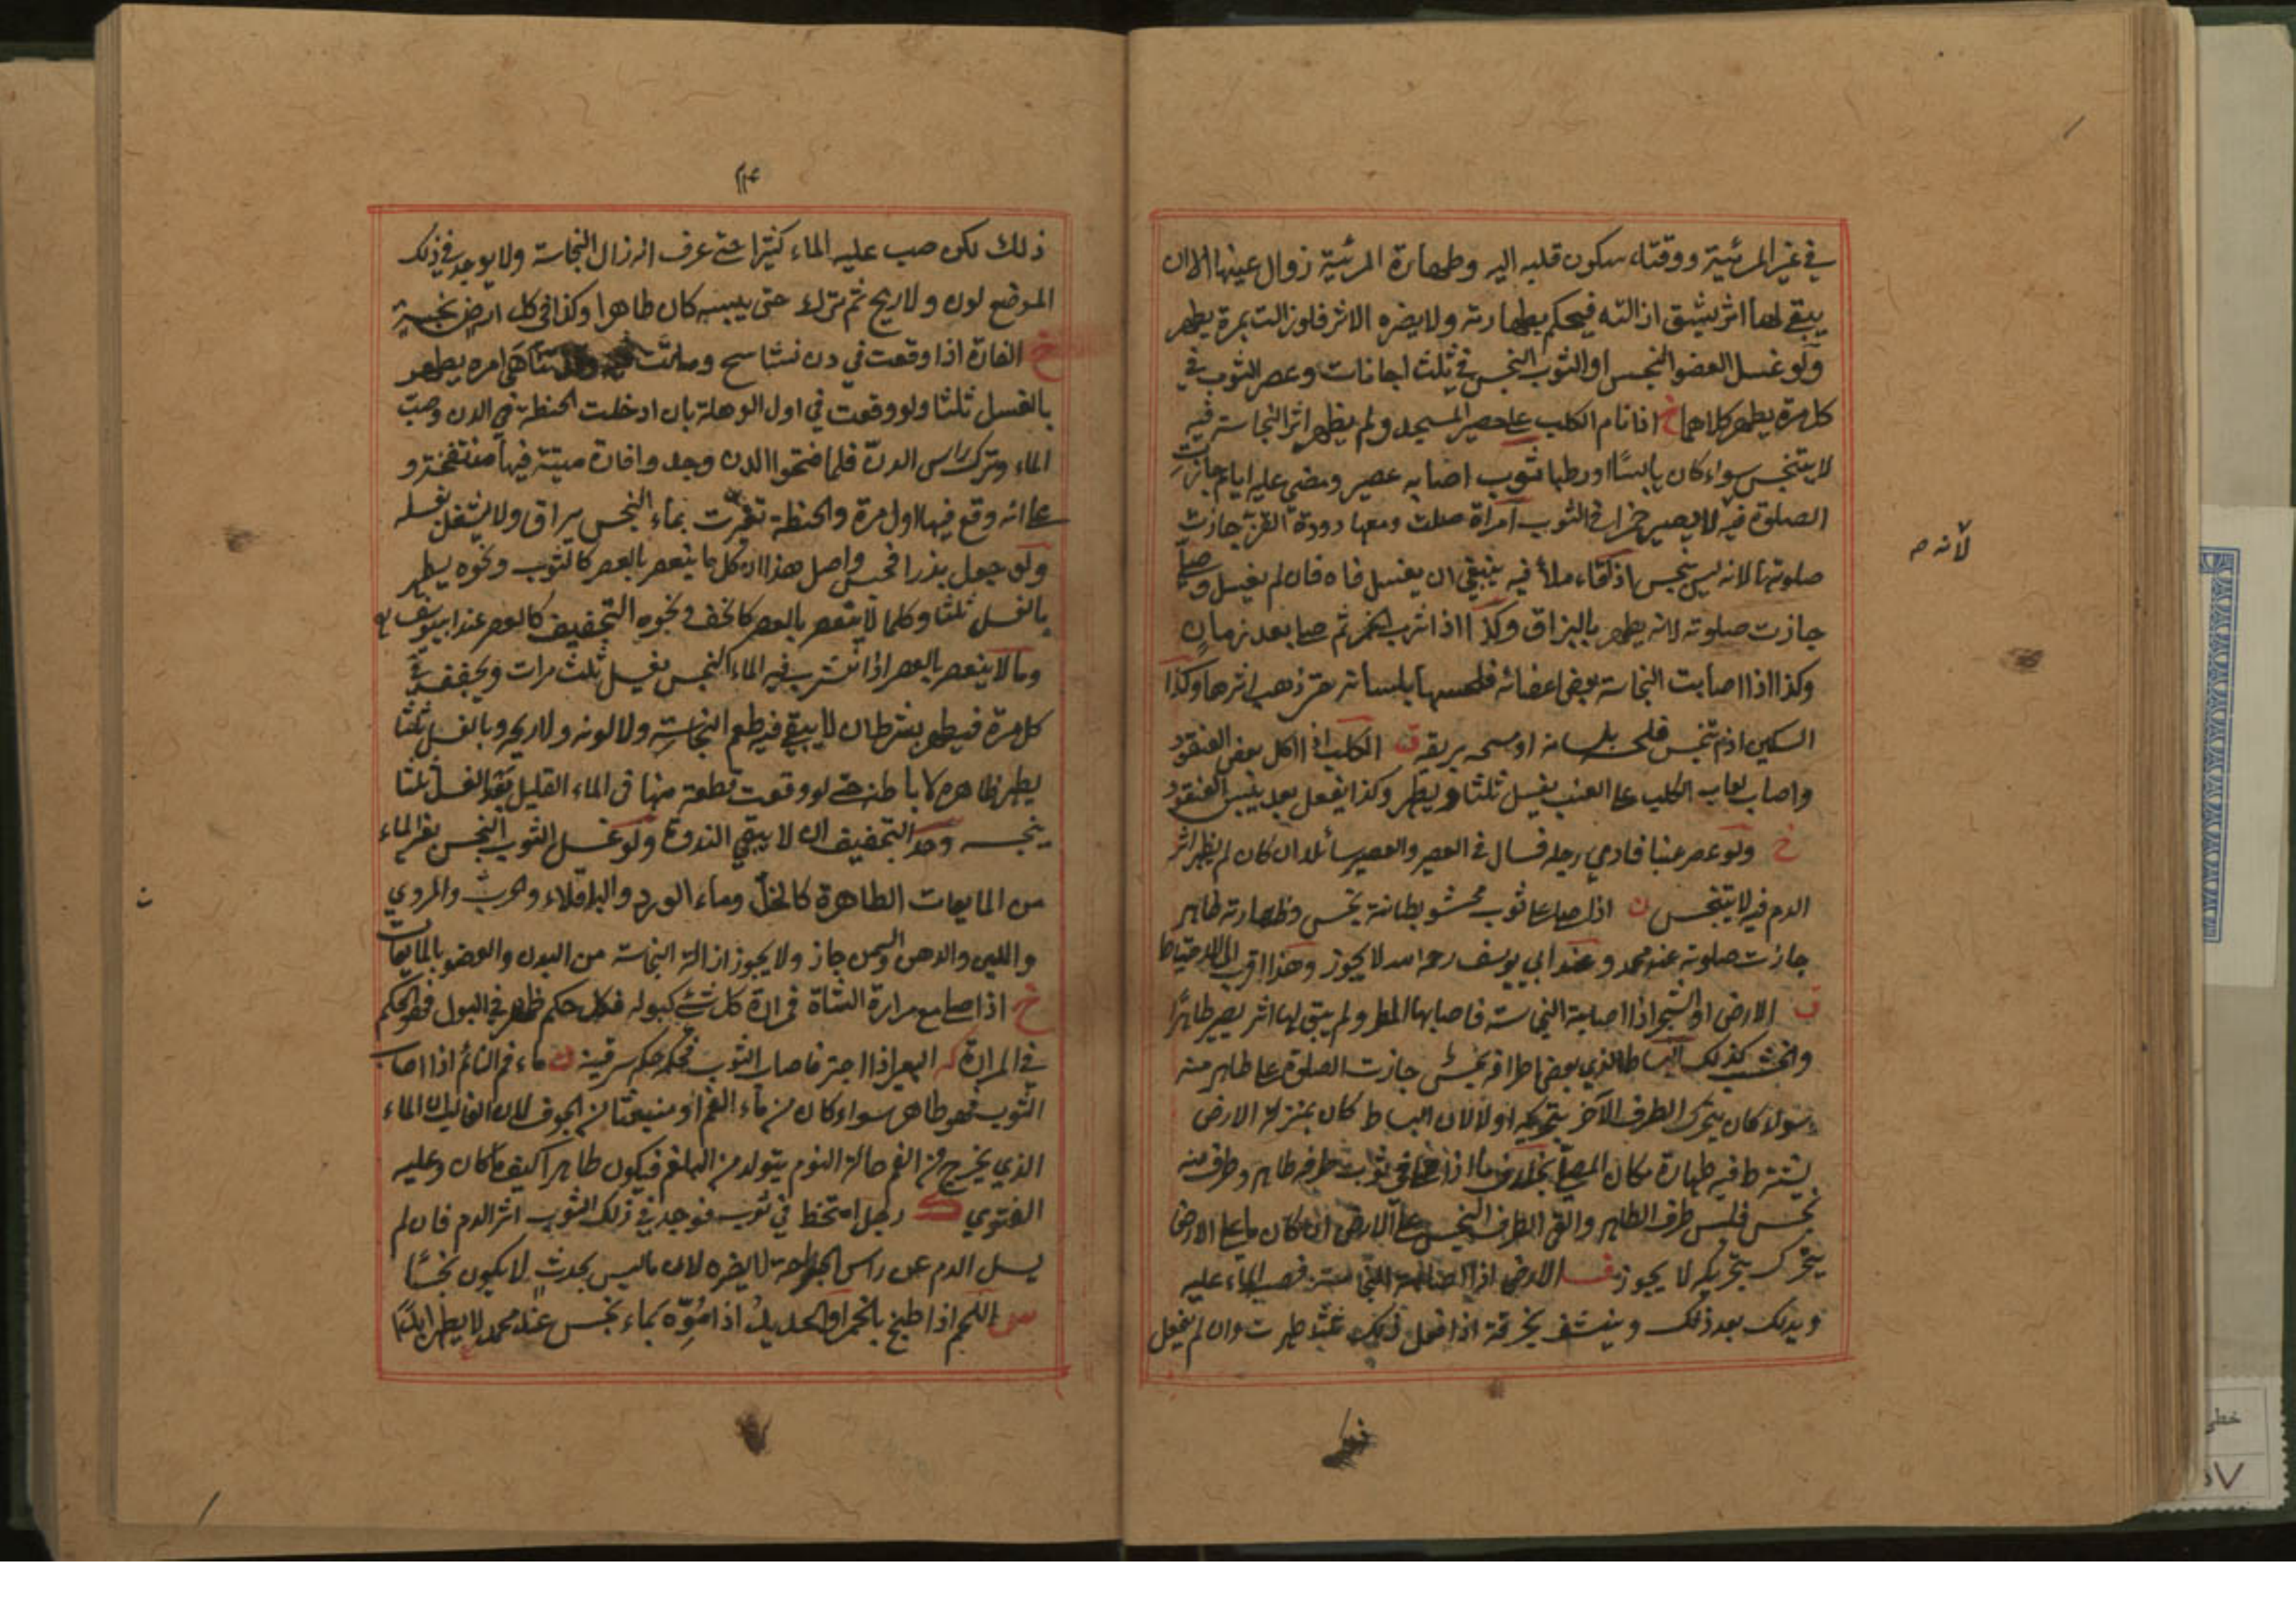 في غير المرئية ووقتاء سكون قلبه اليه وطهارة المرئية زوال عينها الا ان
يبقى لها اثر يشق ازالته فيحكم بطهارته ولا يضره الاثر فلو زالت بمرة يطهر
ولو غسل العضو النجس او الثوب النجس في ثلث اجانات وعصر الثوب في
كل مرة يطهر كلاهما خ اذا نام الكلب على حصير المسجد ولم يظهر اثر النجاسة فيه
لا يتنجس سواء كان يابسًا او رطبا ثوب اصابه عصير ومضى عليه ايام جازت
الصلوة فيه لا يصير خمرا في الثوب امرأة صلت ومعها دودة القز جازت
لانه م
صلوتها لانه ليس بنجس اذا قاء ملأ فيه ينبغي ان يغسل فاه فان لم يغسل وصلى
جازت صلوته لانه يطهر بالبزاق وكذا اذا شرب الخمر ثم صلى بعد زمان
وكذا اذا اصابت النجاسة بعض اعضائه فلحسها بلسانه حتى ذهب اثرها وكذا
السكين اذا تنجس فلحسه بلسانه او مسحه بريقه ن الكلب اذا اكل بعض العنقود
واصاب لعاب الكلب على العنب يغسل ثلثا ويطهر وكذا يفعل بعد يبس العنقود
خ ولو عصر عنبا فادمي رجله فسال في العصير والعصير سائلا ان كان لم يظهر اثر
الدم فيه لا يتنجس ن اذا صلى على ثوب محشو بطانته نجس وظهارته طاهر
جازت صلوته عند محمد وعند ابي يوسف رحمه الله لا يجوز وهذا اقرب الى الاحتياط
ن الارض او الشجر اذا اصابته النجاسة فاصابها المطر ولم يبق لها اثر يصير طاهرًا
والخشب كذلك البساط الذي بعض اطرافه نجس جازت الصلوة على طاهر منه
سواء كان يتحرك الطرف الآخر بتحريكه او لا لان البساط كان بمنزلة الارض
يشترط فيه طهارة مكان المصلي بخلاف ما اذا صلى في ثوب طرفه طاهر وطرف منه
نجس فلبس طرف الطاهر والقى الطرف النجس على الارض ان كان ما على الارض
يتحرك بتحريكه لا يجوز ف الارض اذا اصابته النجاسة فصب الماء عليه
ويدلك بعد ذلك وينشف بخرقة اذا فعل ذلك ثلثا طهرت وان لم يفعل
ذلك لكن صب عليه الماء كثيرا حتى عرف انه زال النجاسة ولا يوجد في ذلك
الموضع لون ولا ريح ثم ترك حتى يبسه كان طاهرا وكذا في كل ارض نجسة
خ الفارة اذا وقعت في دن نشاسج وماتت امره يطهر
بالغسل ثلثا ولو وقعت في اول الوهلة بان ادخلت الحنطة في الدن وصب
الماء وترك راس الدن فلما فتحوا الدن وجدوا فارة ميتة فيها منتفخة و
على انه وقع فيها اول مرة والحنطة تغيرت بماء النجس يراق ولا يشتغل بغسله
ولو جعل بذرا فحسن واصل هذا ان كل ما ينعصر بالعصر كالثوب ونحوه يطهر
بالغسل ثلثا وكلما لا ينعصر بالعصر كالخف ونحوه التجفيف كالعصر عند ابي يوسف
وما لا ينعصر بالعصر اذا تشرب فيه الماء النجس يغسل ثلث مرات ويجفف في
كل مرة فيطهر بشرط ان لا يبقى فيه طعم النجاسة ولا لونه ولا ريحه وبالغسل ثلثا
يطهر ظاهره لا باطنه حتى لو وقعت قطعة منها في الماء القليل بعد الغسل ثلثا
ينجسه وحد التجفيف ان لا يبقى الندوة ولو غسل الثوب النجس بغير الماء
من المايعات الطاهرة كالخل وماء الورد والباقلاء والمروي
واللبن والدهن والسمن جاز ولا يجوز ازالة النجاسة من البدن والعضو بالمايعات
خ اذا صلى مع مرارة الشاة فمرارة كل شئ كبوله فكل حكم ظهر في البول فهو الحكم
في المرارة ك البعير اذا اجتر فاصاب الثوب فحكمه حكم سرقينه ن ماء فم النائم اذا اصاب
الثوب فهو طاهر سواء كان من ماء الفم او منبعثا من الجوف لان الغالب ان الماء
الذي يخرج من الفم حالة النوم يتولد من البلغم فيكون طاهرا كيف ما كان وعليه
الفتوى ك رجل امتخط في ثوب فوجد في ذلك الثوب اثر الدم فان لم
يسل الدم عن راس الجراحة لا يضره لان ما ليس بحدث لا يكون نجسًا
س اللحم اذا طبخ بالخمر او الحديد اذا مُوّه بماء نجس عند محمد لا يطهر ابدًا